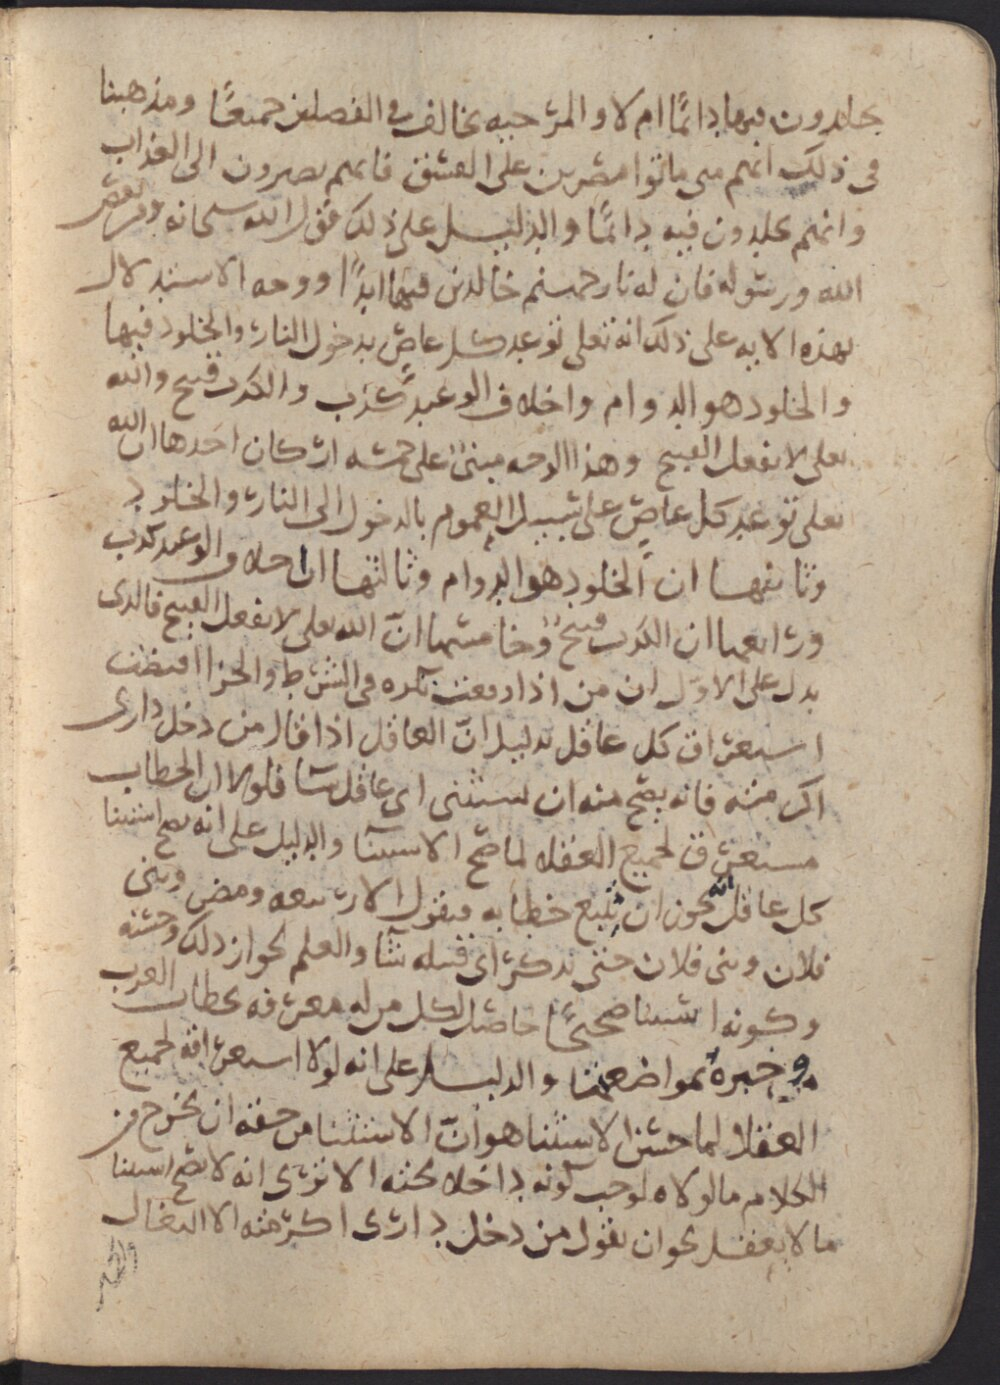 يخلدون فيها دائمًا ام لا والمرجيه تخالف في الفصلين جميعًا ومذهبنا
في ذلك انهم متى ماتوا مصرين على الفسق فانهم يصيرون الى العذاب
وانهم يخلدون فيه دائمًا والدليل على ذلك قول الله سبحانه ومن يعص
الله ورسوله فان له نار جهنم خالدين فيها ابدًا ووجه الاستدلال
بهذه الايه على ذلك انه تعلى توعد كل عاصٍ بدخول النار والخلود فيها
والخلود هو الدوام واخلاف الوعيد كذب والكذب قبيح والله
تعلى لا يفعل القبيح وهذا الوجه مبنيٌ على خمسه اركان احدها ان الله
تعلى توعد كل عاصٍ على سبيل العموم بالدخول الى النار والخلود
وثانيها ان الخلود هو الدوام وثالثها ان اخلاف الوعيد كذب
ورابعها ان الكذب قبيحٌ وخامسها انّ الله تعلى لا يفعل القبيح فالذي
يدل على الاوّل ان من اذا وقعت نكره في الشرط والجزا اقتضت
استغراق كل عاقل بدليل انّ العاقل اذا قال من دخل داري
اكرمته فانه يصح منه ان يستثني اي عاقل شا فلولا ان الخطاب
مستغرق لجميع العقلا لما صحّ الاستثنا والدليل على انه يصح استثنا
كل عاقل انه يجوز ان يتبع خطابه فيقول الا ربيعه ومضر وبني
فلان وبني فلان حتى يذكر اي قبيله شا والعلم بجواز ذلك وحسنه
وكونه استثنا صحيحًا حاصل لكل من له معرفه بخطاب العرب
وخبرةٌ بمواضعتها والدليل على انه لولا استغراقه لجميع
العقلا لما حسن الاستثنا هو انّ الاستثنا من حقه ان يخرج من
الكلام ما لولاه لوجب كونه داخلا تحته الا ترى انه لا يصح استثنا
ما لا يعقل نحو ان يقول من دخل داري اكرمته الا البغال